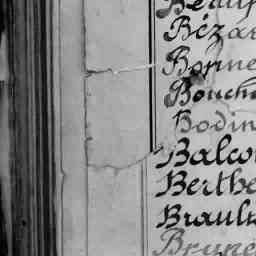 Beaup
Bézar
Bonne
Bouche
Bodin
Balco
Berthe
Braulx
Brune